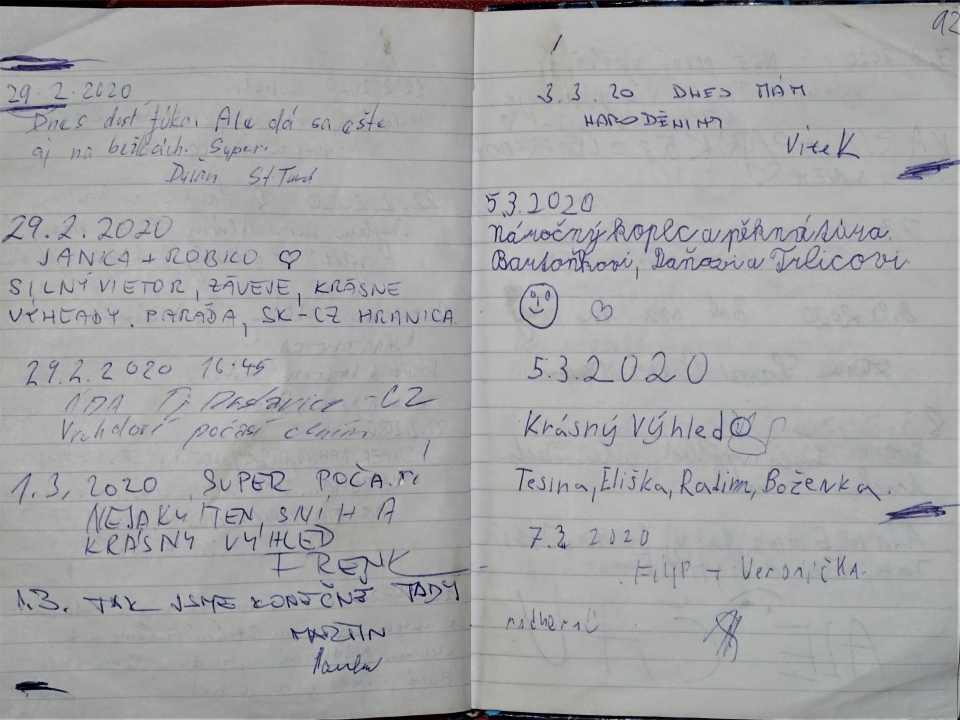 29.2.2020
Dnes dosť fúka. Ale dá sa ešte
aj na bežkách. Super.
29.2.2020
JANKA + ROBKO ♡
SILNÝ VIETOR, ZÁVEJE, KRÁSNE
VÝHĽADY. PARÁDA, SK-CZ HRANICA
29.2.2020 16:45
CZ
počasí
1.3.2020 SUPER POČASÍ
NEJAKÝ TEN SNÍH A
KRÁSNÝ VÝHLED
FRENK
1.3. TAK JSME KONEČNĚ TADY
MARTIN
92
3.3.20 DNES MÁM
NAROZENINY
Vítek
5.3.2020
Náročný kopec a pěkná túra.
Bartoňkovi, Daňovi a Trlicovi
♡
5.3.2020
Krásný výhled
Tesina, Eliška, Radim, Boženka.
7.3.2020
Filip + Veronička.
nádherně